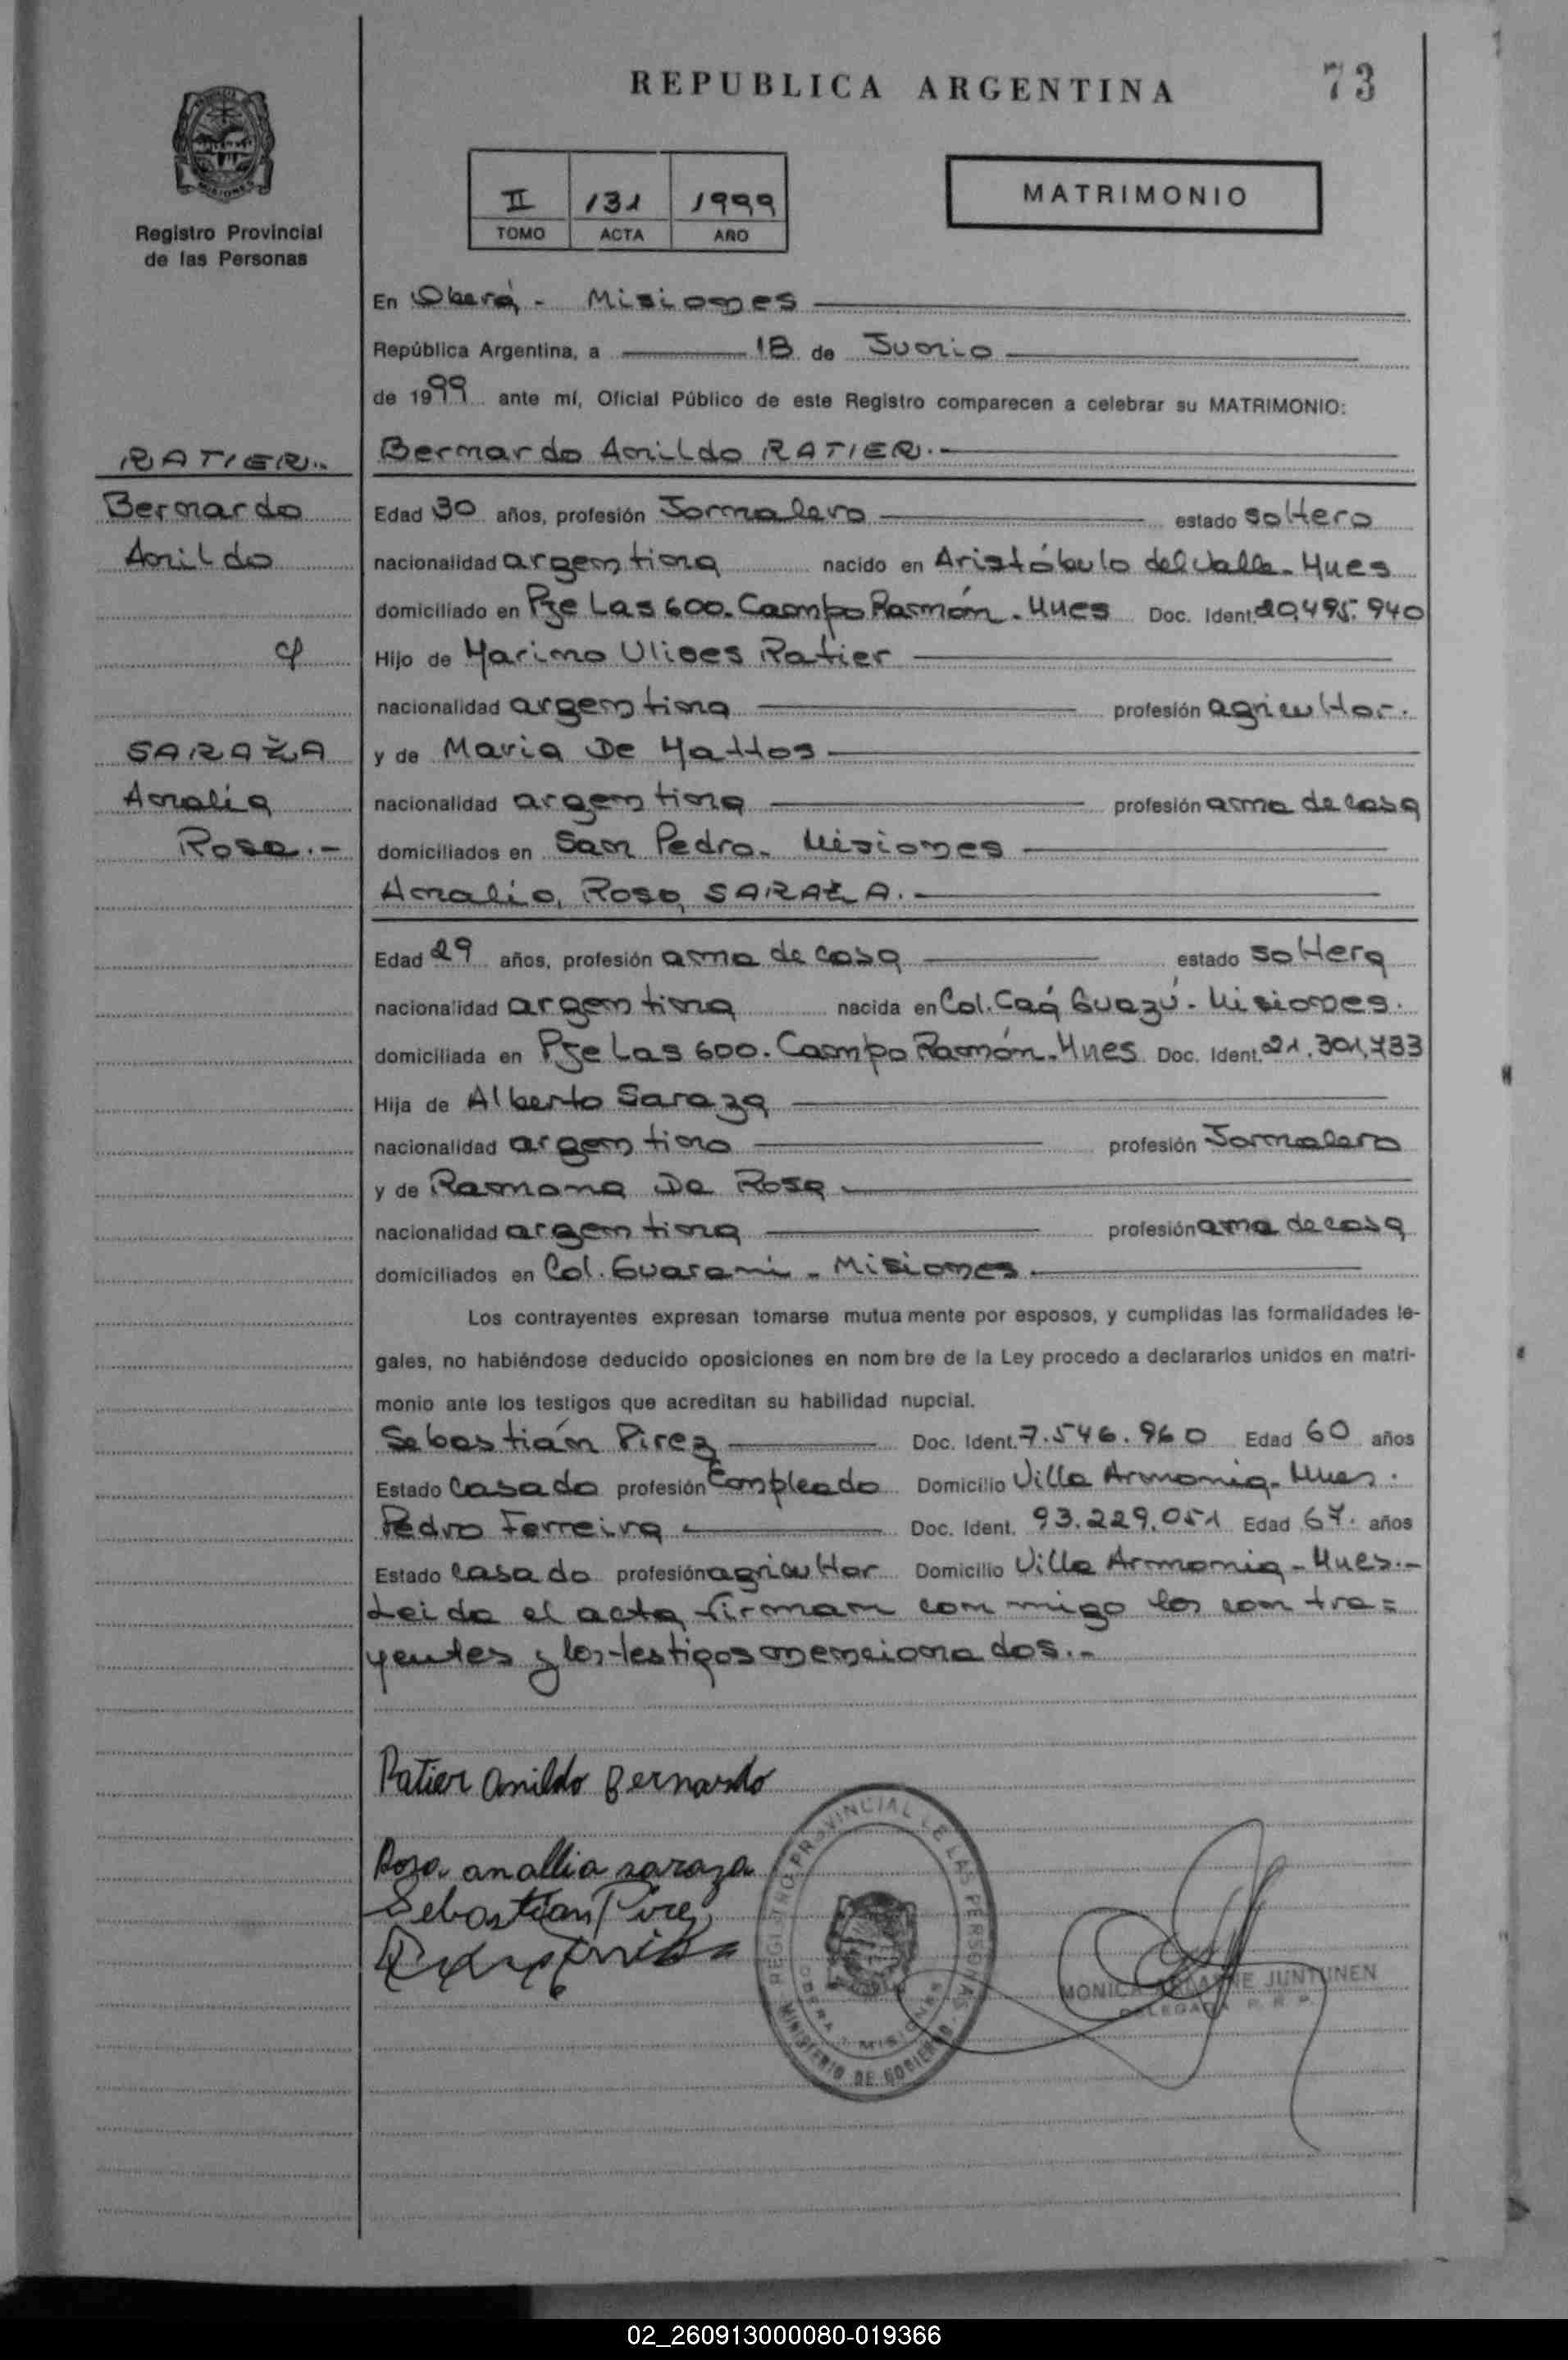 REPUBLICA ARGENTINA
73
Registro Provincial
de las Personas
II 131 1999
TOMO ACTA AÑO
MATRIMONIO
En Oberá - Misiones
República Argentina, a 18 de Junio
de 1999 ante mí, Oficial Público de este Registro comparecen a celebrar su MATRIMONIO:
RATIER.-
Bernardo
Anildo
c/
SARAZA
Analia
Rosa.-
Bernardo Anildo RATIER.-
Edad 30 años, profesión Jornalero estado soltero
nacionalidad argentina nacido en Aristóbulo del Valle - Mnes
domiciliado en Pje Las 600. Campo Ramón. Mnes Doc. Ident. 20.495.940
Hijo de Marino Ulises Ratier
nacionalidad argentina profesión agricultor.
y de Maria De Mattos
nacionalidad argentina profesión ama de casa
domiciliados en San Pedro. Misiones
Analia Rosa SARAZA.-
Edad 29 años, profesión ama de casa estado soltera
nacionalidad argentina nacida en Col. Caá Guazú - Misiones.
domiciliada en Pje Las 600. Campo Ramón. Mnes Doc. Ident. 21.301.733
Hija de Alberto Saraza
nacionalidad argentino profesión Jornalero
y de Ramona Da Rosa
nacionalidad argentina profesión ama de casa
domiciliados en Col. Guarani - Misiones.
Los contrayentes expresan tomarse mutua mente por esposos, y cumplidas las formalidades le-
gales, no habiéndose deducido oposiciones en nom bre de la Ley procedo a declararlos unidos en matri-
monio ante los testigos que acreditan su habilidad nupcial.
Sebastián Pirez Doc. Ident. 7.546.960 Edad 60 años
Estado casado profesión Empleado Domicilio Villa Armonia - Mnes.
Pedro Ferreira Doc. Ident. 93.229.051 Edad 67. años
Estado casado profesión agricultor Domicilio Villa Armonia - Mnes.-
Leida el acta firman con migo los contra=
yentes y los testigos mencionados.-
Ratier Anildo Bernardo
Rosa anallia saraza
Sebastian Pirez
REGISTRO PROVINCIAL DE LAS PERSONAS
OBERA - MISIONES
MINISTERIO DE GOBIERNO
MONICA ARIASNE JUNTUNEN
DELEGADA R. P. P.
02_260913000080-019366